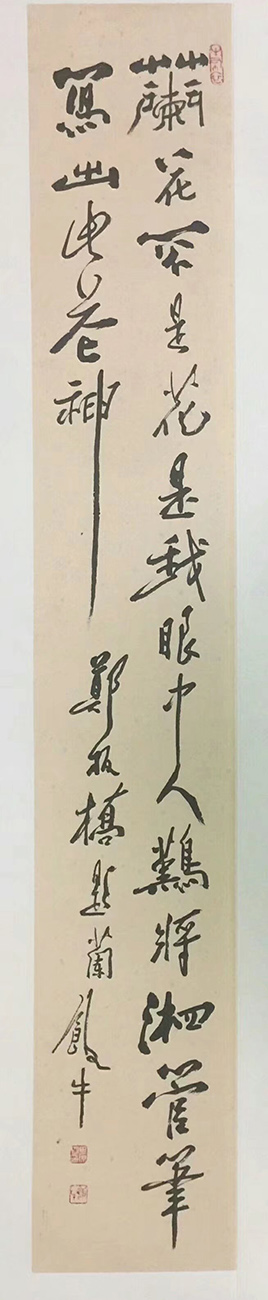 蘭花不是花是我眼中人難將湘管筆
寫出此花神
鄭板橋題蘭 飲牛